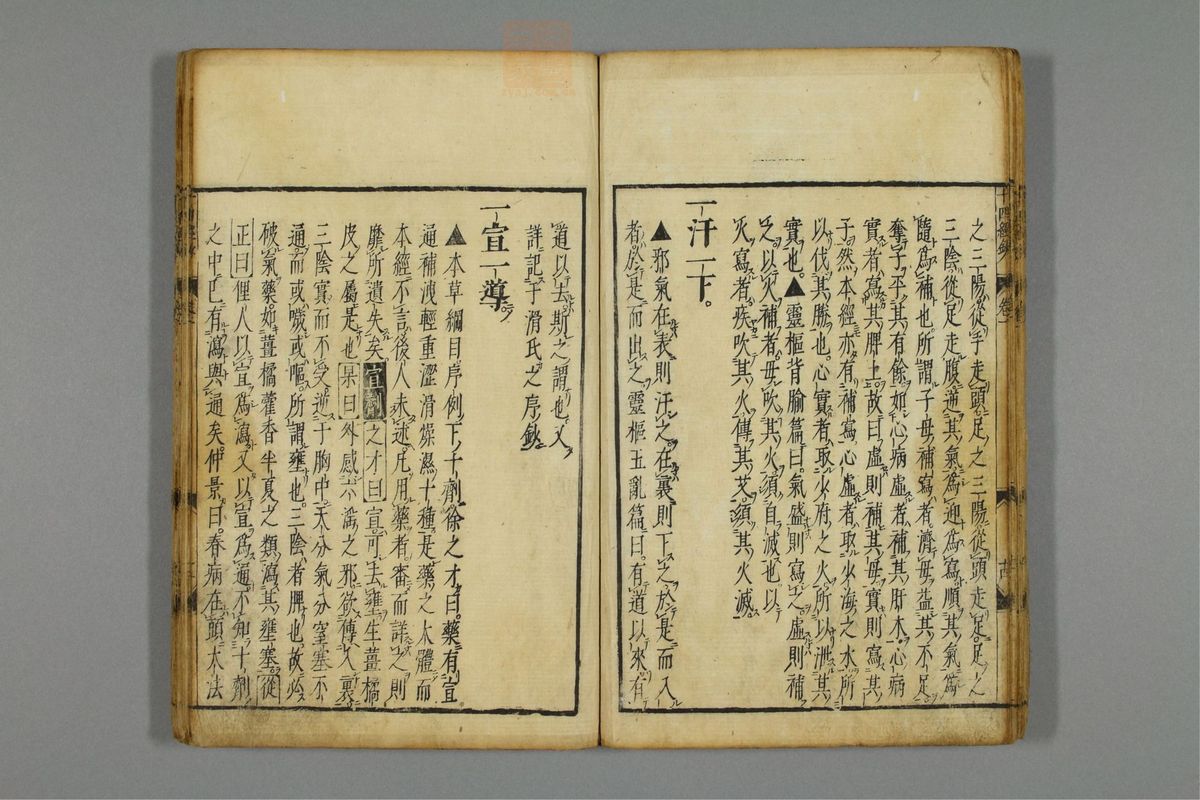 之三陽從手走頭足之三陽從頭走足足之
三陰從足走腹逆其氣為迎為寫順其氣為
隨為補也所謂子母補寫者濟母益其不足
奪子平其有餘如心病虛者補其肝木心病
實者寫其脾土故曰虛則補其母實則寫其
子然本經亦有補寫心虛者取少海之水所
以伐其勝也心實者取少府之火所以泄其
實也▲靈樞背腧篇曰氣盛則寫之虛則補
之以火補者毋吹其火須自滅也以
火寫者疾吹其火傳其艾須其火滅
一汗一下
▲邪氣在表則汗之在裏則下之於是而入
者於是而出之靈樞五亂篇曰有道以來有
道以去斯之謂也又
詳記于滑氏之序鈔
一宣一導
▲本草綱目序例下十劑徐之才曰藥有宣
通補洩輕重澀滑燥濕十種是藥之大體而
本經不言後人未述凡用藥者審而詳之則
靡所遺失矣宣劑之才曰宣可去壅生薑橘
皮之屬是也杲曰外感六淫之邪欲傳入裏
三陰實而不受逆于胸中天分氣分窒塞不
通而或噦或嘔所謂壅也三陰者脾也故必
破氣藥如薑橘藿香半夏之類瀉其壅塞從
正曰俚人以宣為瀉又以宣為通不知十劑
之中已有瀉與通矣仲景曰春病在頭大法